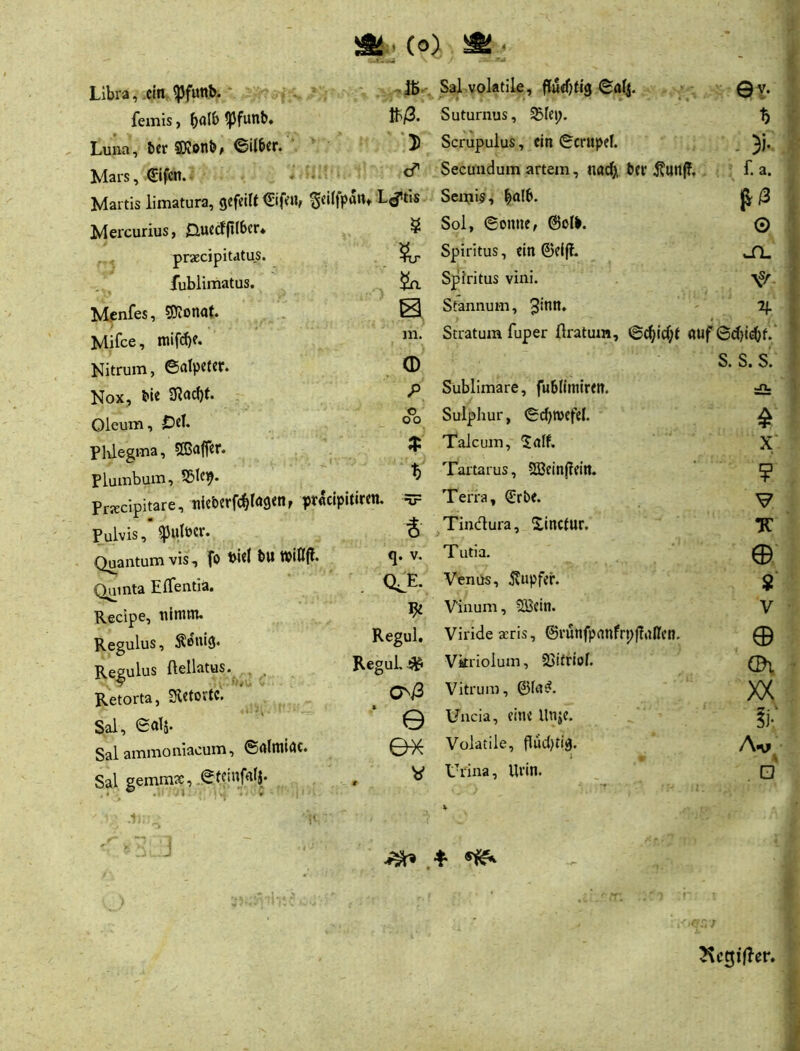 (o)
Libra, ein Pfund. ℔
semis, halb Pfund. ℔β.
Luna, der Mond, Silber. ☽
Mars, Eisen. ♂
Martis limatura, gefeilt Eisen, Feilspän, L♂tis
Mercurius, Quecksilber. ☿
præcipitatus.
sublimatus.
Menses, Monat.
Misce, mische. m.
Nitrum, Salpeter.
Nox, die Nacht.
Oleum, Oel.
Phlegma, Wasser.
Plumbum, Bley. ♄
Præcipitare, niederschlagen, präcipitiren.
Pulvis, Pulver.
Quantum vis, so viel du willst. q. v.
Quinta Essentia. Q. E.
Recipe, nimm. ℞
Regulus, König. Regul.
Regulus stellatus. Regul.
Retorta, Retorte.
Sal, Salz. ⊖
Sal ammoniacum, Salmiac. ⊖✳
Sal gemmæ, Steinsalz.
Sal volatile, flüchtig Salz. ⊖v.
Suturnus, Bley. ♄
Scrupulus, ein Scrupel. ℈i.
Secundum artem, nach der Kunst. s. a.
Semis, halb. β
Sol, Sonne, Gold. ⊙
Spiritus, ein Geist.
Spiritus vini.
Stannum, Zinn. ♃
Stratum super stratum, Schicht auf Schicht.
S. S. S.
Sublimare, sublimiren.
Sulphur, Schwefel. 🜍
Talcum, Talk. X
Tartarus, Weinstein.
Terra, Erde.
Tinctura, Tinctur.
Tutia.
Venus, Kupfer. ♀
Vinum, Wein. V
Viride æris, Grünspankrystallen. ⊕
Vitriolum, Vitriol.
Vitrum, Glas.
Uncia, eine Unze. ℥j.
Volatile, flüchtig.
Urina, Urin. □
Register.